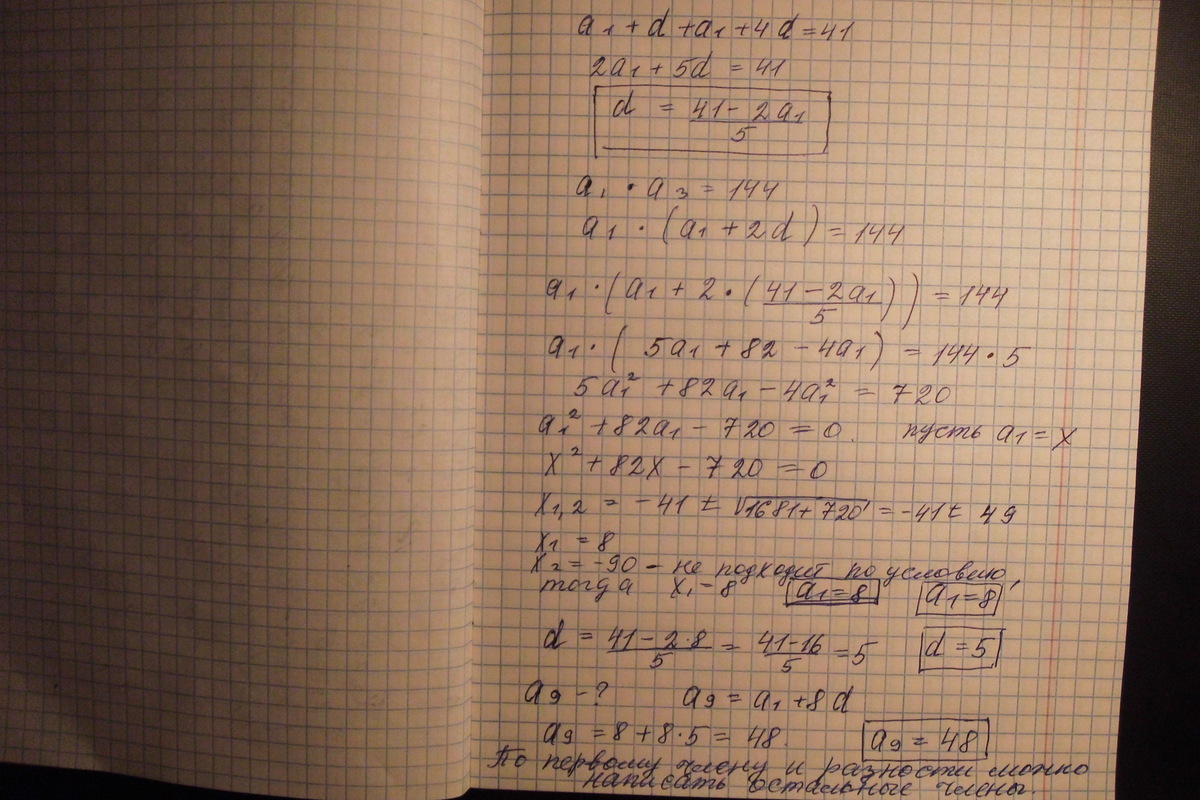 a₁ + d + a₁ + 4d = 41
2a₁ + 5d = 41
d = (41 - 2a₁)/5
a₁ · a₃ = 144
a₁ · (a₁ + 2d) = 144
a₁ · (a₁ + 2 · ((41 - 2a₁)/5)) = 144
a₁ · (5a₁ + 82 - 4a₁) = 144 · 5
5a₁² + 82a₁ - 4a₁² = 720
a₁² + 82a₁ - 720 = 0. пусть a₁ = x
x² + 82x - 720 = 0
x₁,₂ = -41 ± √(1681 + 720) = -41 ± 49
x₁ = 8
x₂ = -90 - не подходит по условию,
тогда x₁ = 8 a₁ = 8 a₁ = 8
d = (41 - 2·8)/5 = (41 - 16)/5 = 5 d = 5
a₉ - ? a₉ = a₁ + 8d
a₉ = 8 + 8·5 = 48. a₉ = 48
По первому члену и разности можно
написать остальные члены.